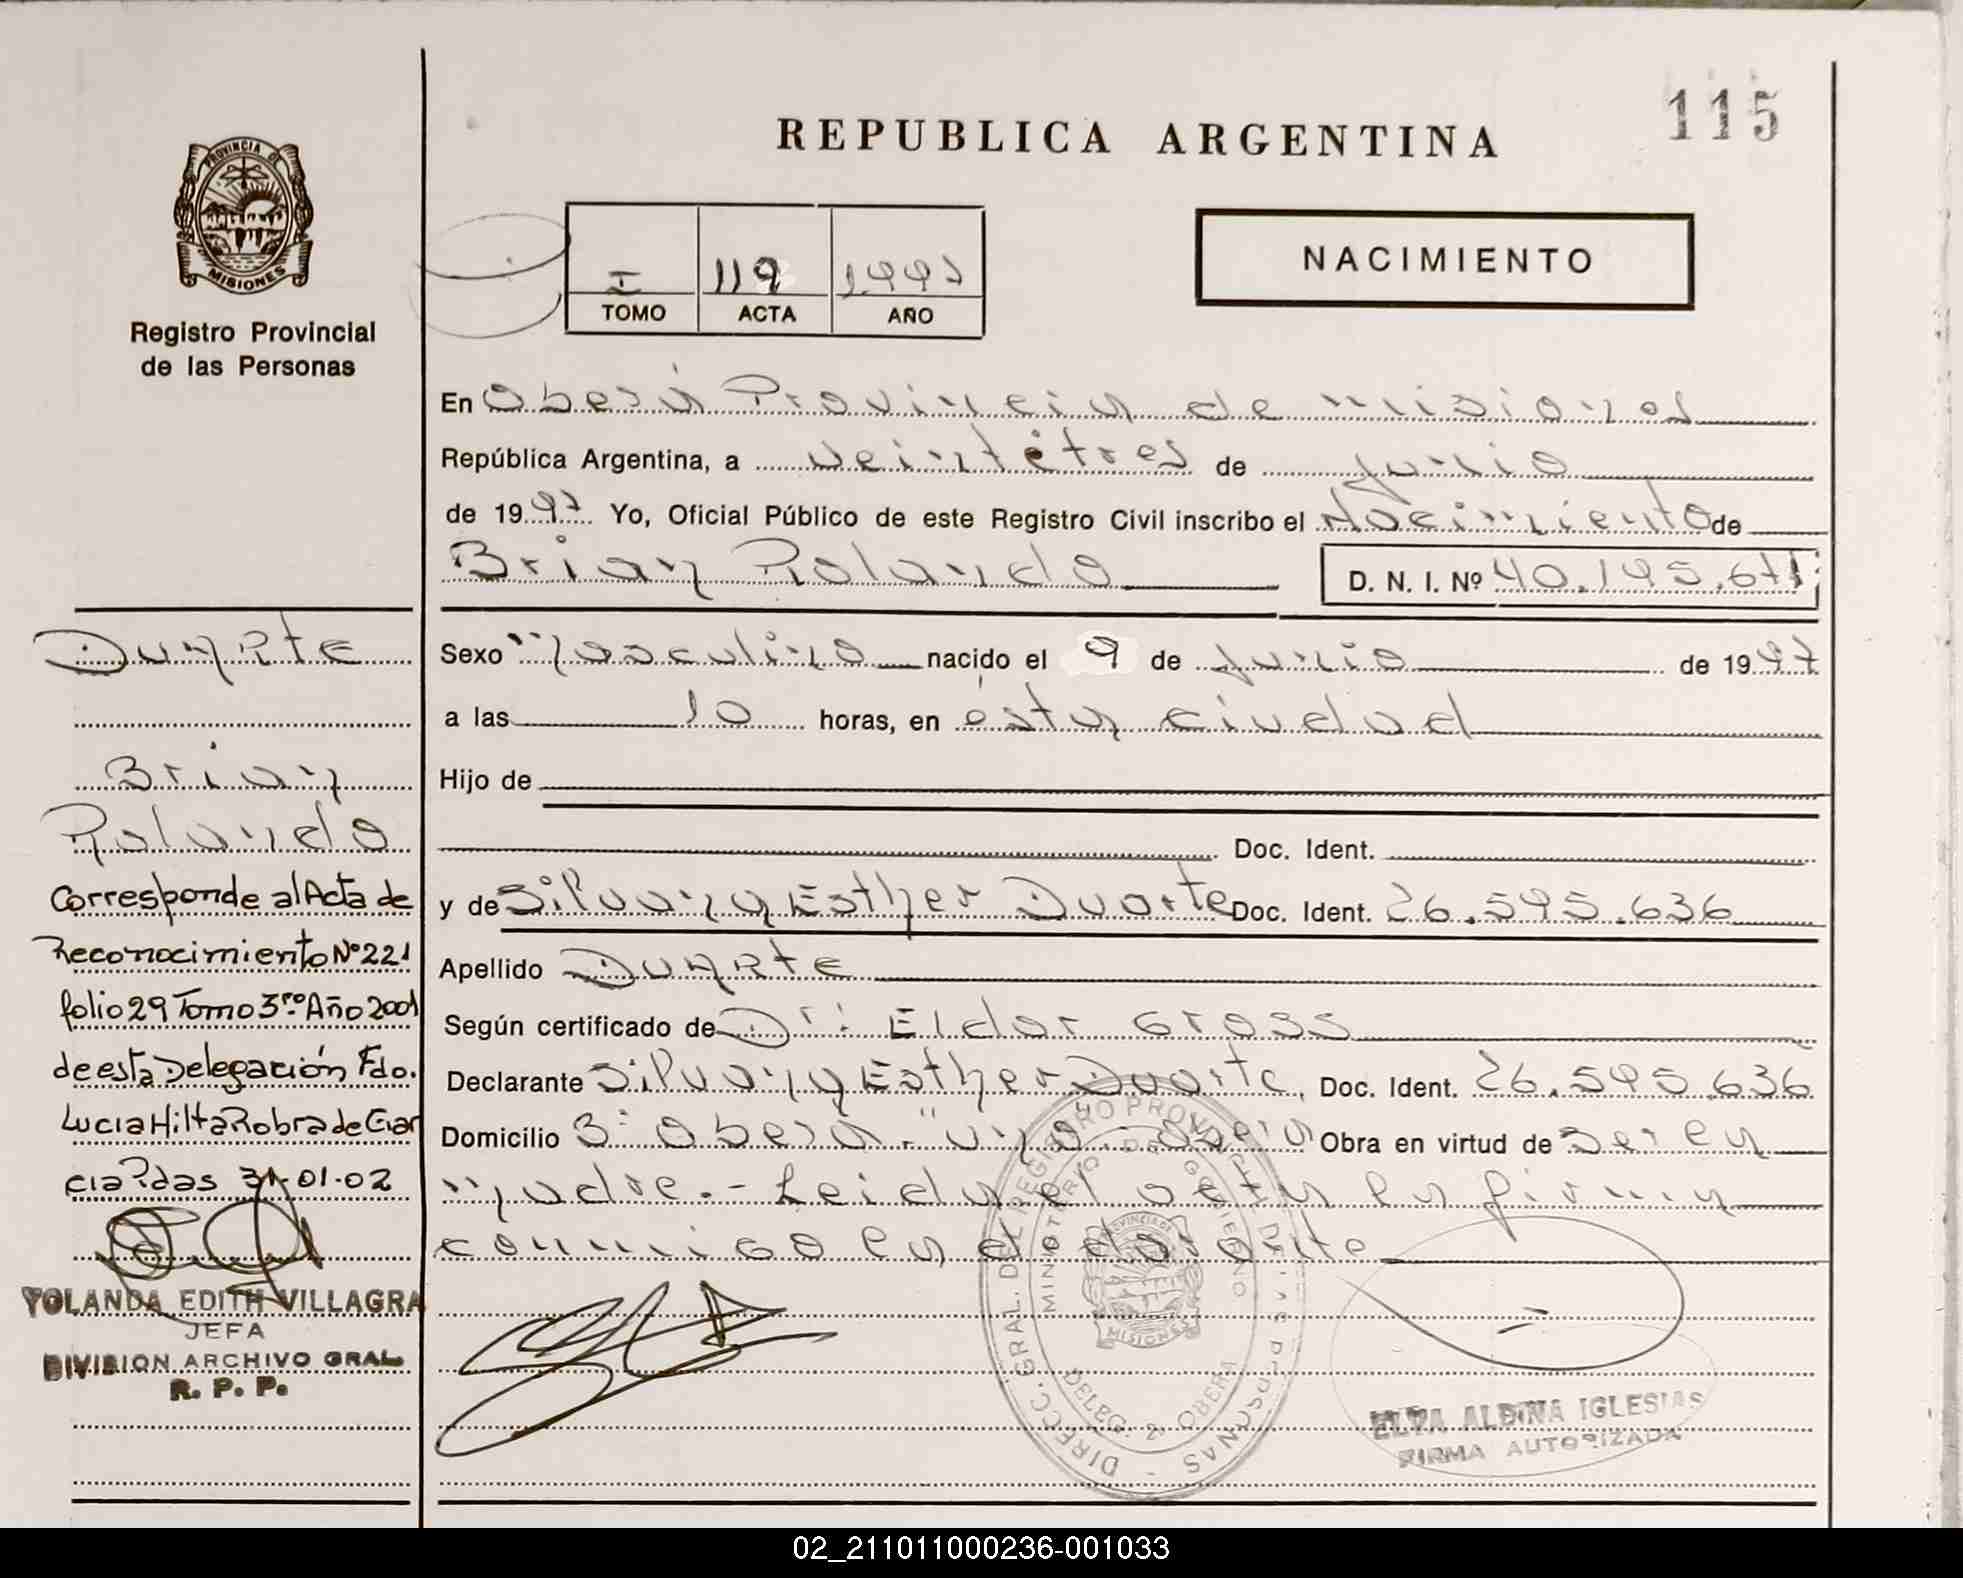 115
REPUBLICA ARGENTINA
PROVINCIA DE
MISIONES
Registro Provincial
de las Personas
I 119 1997
TOMO ACTA AÑO
NACIMIENTO
En Oberá Provincia de Misiones
República Argentina, a veintitres de junio
de 1997 Yo, Oficial Público de este Registro Civil inscribo el Nacimiento de
Brian Rolando D. N. I. Nº 40.195.671
Sexo Masculino nacido el 9 de junio de 1997
a las 10 horas, en ésta ciudad
Hijo de
Doc. Ident.
y de Silvana Esther Duarte Doc. Ident. 26.595.636
Apellido DUARTE
Según certificado de Dr: Eldor Gross
Declarante Silvana Esther Duarte, Doc. Ident. 26.595.636
Domicilio Oberá Obra en virtud de ser la
madre.- Leida el acta la firma
conmigo la declarante
DUARTE
Brian
Rolando
Corresponde al Acta de
Reconocimiento Nº 221
folio 29 Tomo 3ro. Año 2001
de esta Delegación Fdo.
Lucia Hilta Robra de Gar
cia Pdas 31-01-02
YOLANDA EDITH VILLAGRA
JEFA
DIVISION ARCHIVO GRAL
R. P. P.
DIRECC. GRAL. DEL REGISTRO PROVINCIAL DE LAS PERSONAS
MINISTERIO DE GOBIERNO
PROVINCIA DE
MISIONES
DELEG. 2 OBERA
ELVA ALBINA IGLESIAS
FIRMA AUTORIZADA
02_211011000236-001033